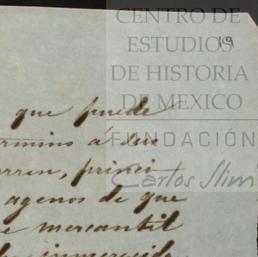 CENTRO DE
ESTUDIOS
19
DE HISTORIA
DE MEXICO
FUNDACIÓN
Carlos Slim
que puede
ermino á sus
rren, princi
agenos de que
e mercantil
inmerecida